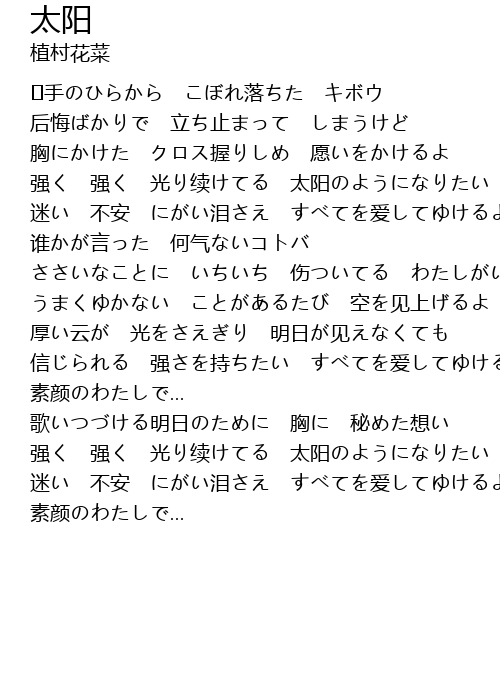 太阳
植村花菜
手のひらから　こぼれ落ちた　キボウ
后悔ばかりで　立ち止まって　しまうけど
胸にかけた　クロス握りしめ　愿いをかけるよ
强く　强く　光り续けてる　太阳のようになりたい
迷い　不安　にがい泪さえ　すべてを爱してゆけるよ
谁かが言った　何气ないコトバ
ささいなことに　いちいち　伤ついてる　わたしがい
うまくゆかない　ことがあるたび　空を见上げるよ
厚い云が　光をさえぎり　明日が见えなくても
信じられる　强さを持ちたい　すべてを爱してゆける
素颜のわたしで…
歌いつづける明日のために　胸に　秘めた想い
强く　强く　光り续けてる　太阳のようになりたい
迷い　不安　にがい泪さえ　すべてを爱してゆけるよ
素颜のわたしで…